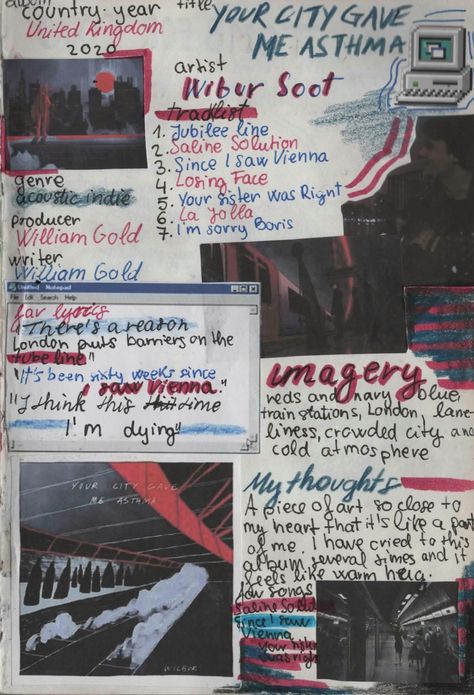 album
country · year
United Kingdom
2020
title
YOUR CITY GAVE
ME ASTHMA
artist
Wilbur Soot
tracklist
1. Jubilee line
2. Saline Solution
3. Since I saw Vienna
4. Losing Face
5. Your sister was Right
6. La Jolla
7. I'm sorry Boris
genre
acoustic indie
producer
William Gold
writer
William Gold
Untitled - Notepad
File Edit Search Help
fav lyrics
"There's a reason
London puts barriers on the
tube line"
"It's been sixty weeks since
I saw Vienna."
"I think this this time
I'm dying"
imagery
reds and navy blue,
train stations, London, lone-
liness, crowded city and
cold atmosphere
YOUR CITY GAVE
ME ASTHMA
WILBUR
My thoughts
A piece of art so close to
my heart that it's like a part
of me. I have cried to this
album several times and it
feels like warm hug.
fav songs
Saline Solution
Since I saw
Vienna
your sister
was right